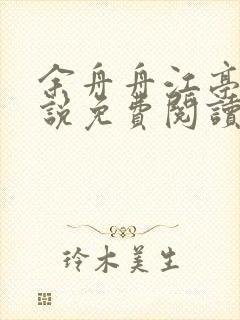 余舟舟江亭
說免費閱讀
玲木美生